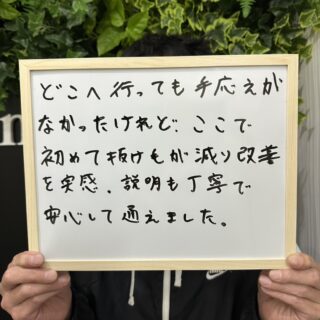 どこへ行っても手応えが
なかったけれど、ここで
初めて抜けもが減り改善
を実感、説明も丁寧で
安心して通えました。